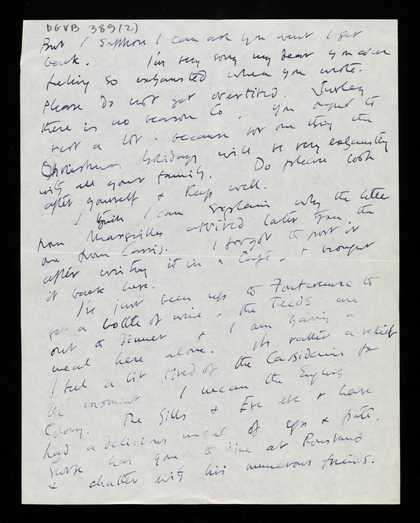 DGVB 389(2)
But I suppose I can ask you when I get
back. I'm very sorry my dear you were
feeling so exhausted when you wrote.
Please do not get overtired. Surely
there is no reason to. You ought to
rest a lot - because for one thing the
Christmas holidays will be very exhausting
with all your family. Do please look
after yourself & keep well.
I think I can explain why the letter
from Marseilles arrived later than the
one from Cassis. I forgot to post it
after writing it in a Café & brought
it back here.
I've just been up to Fontcreuse to
get a bottle of wine & the Teeds are
out to dinner & I am having a
meal here alone. It's rather a relief
I feel a bit tired of the Cassidains for
the moment. I mean the English
Colony. The Gills & Eve etc & I have
had a delicious meal of eggs & pâté.
has gone to dine at
& chatter with his numerous friends.